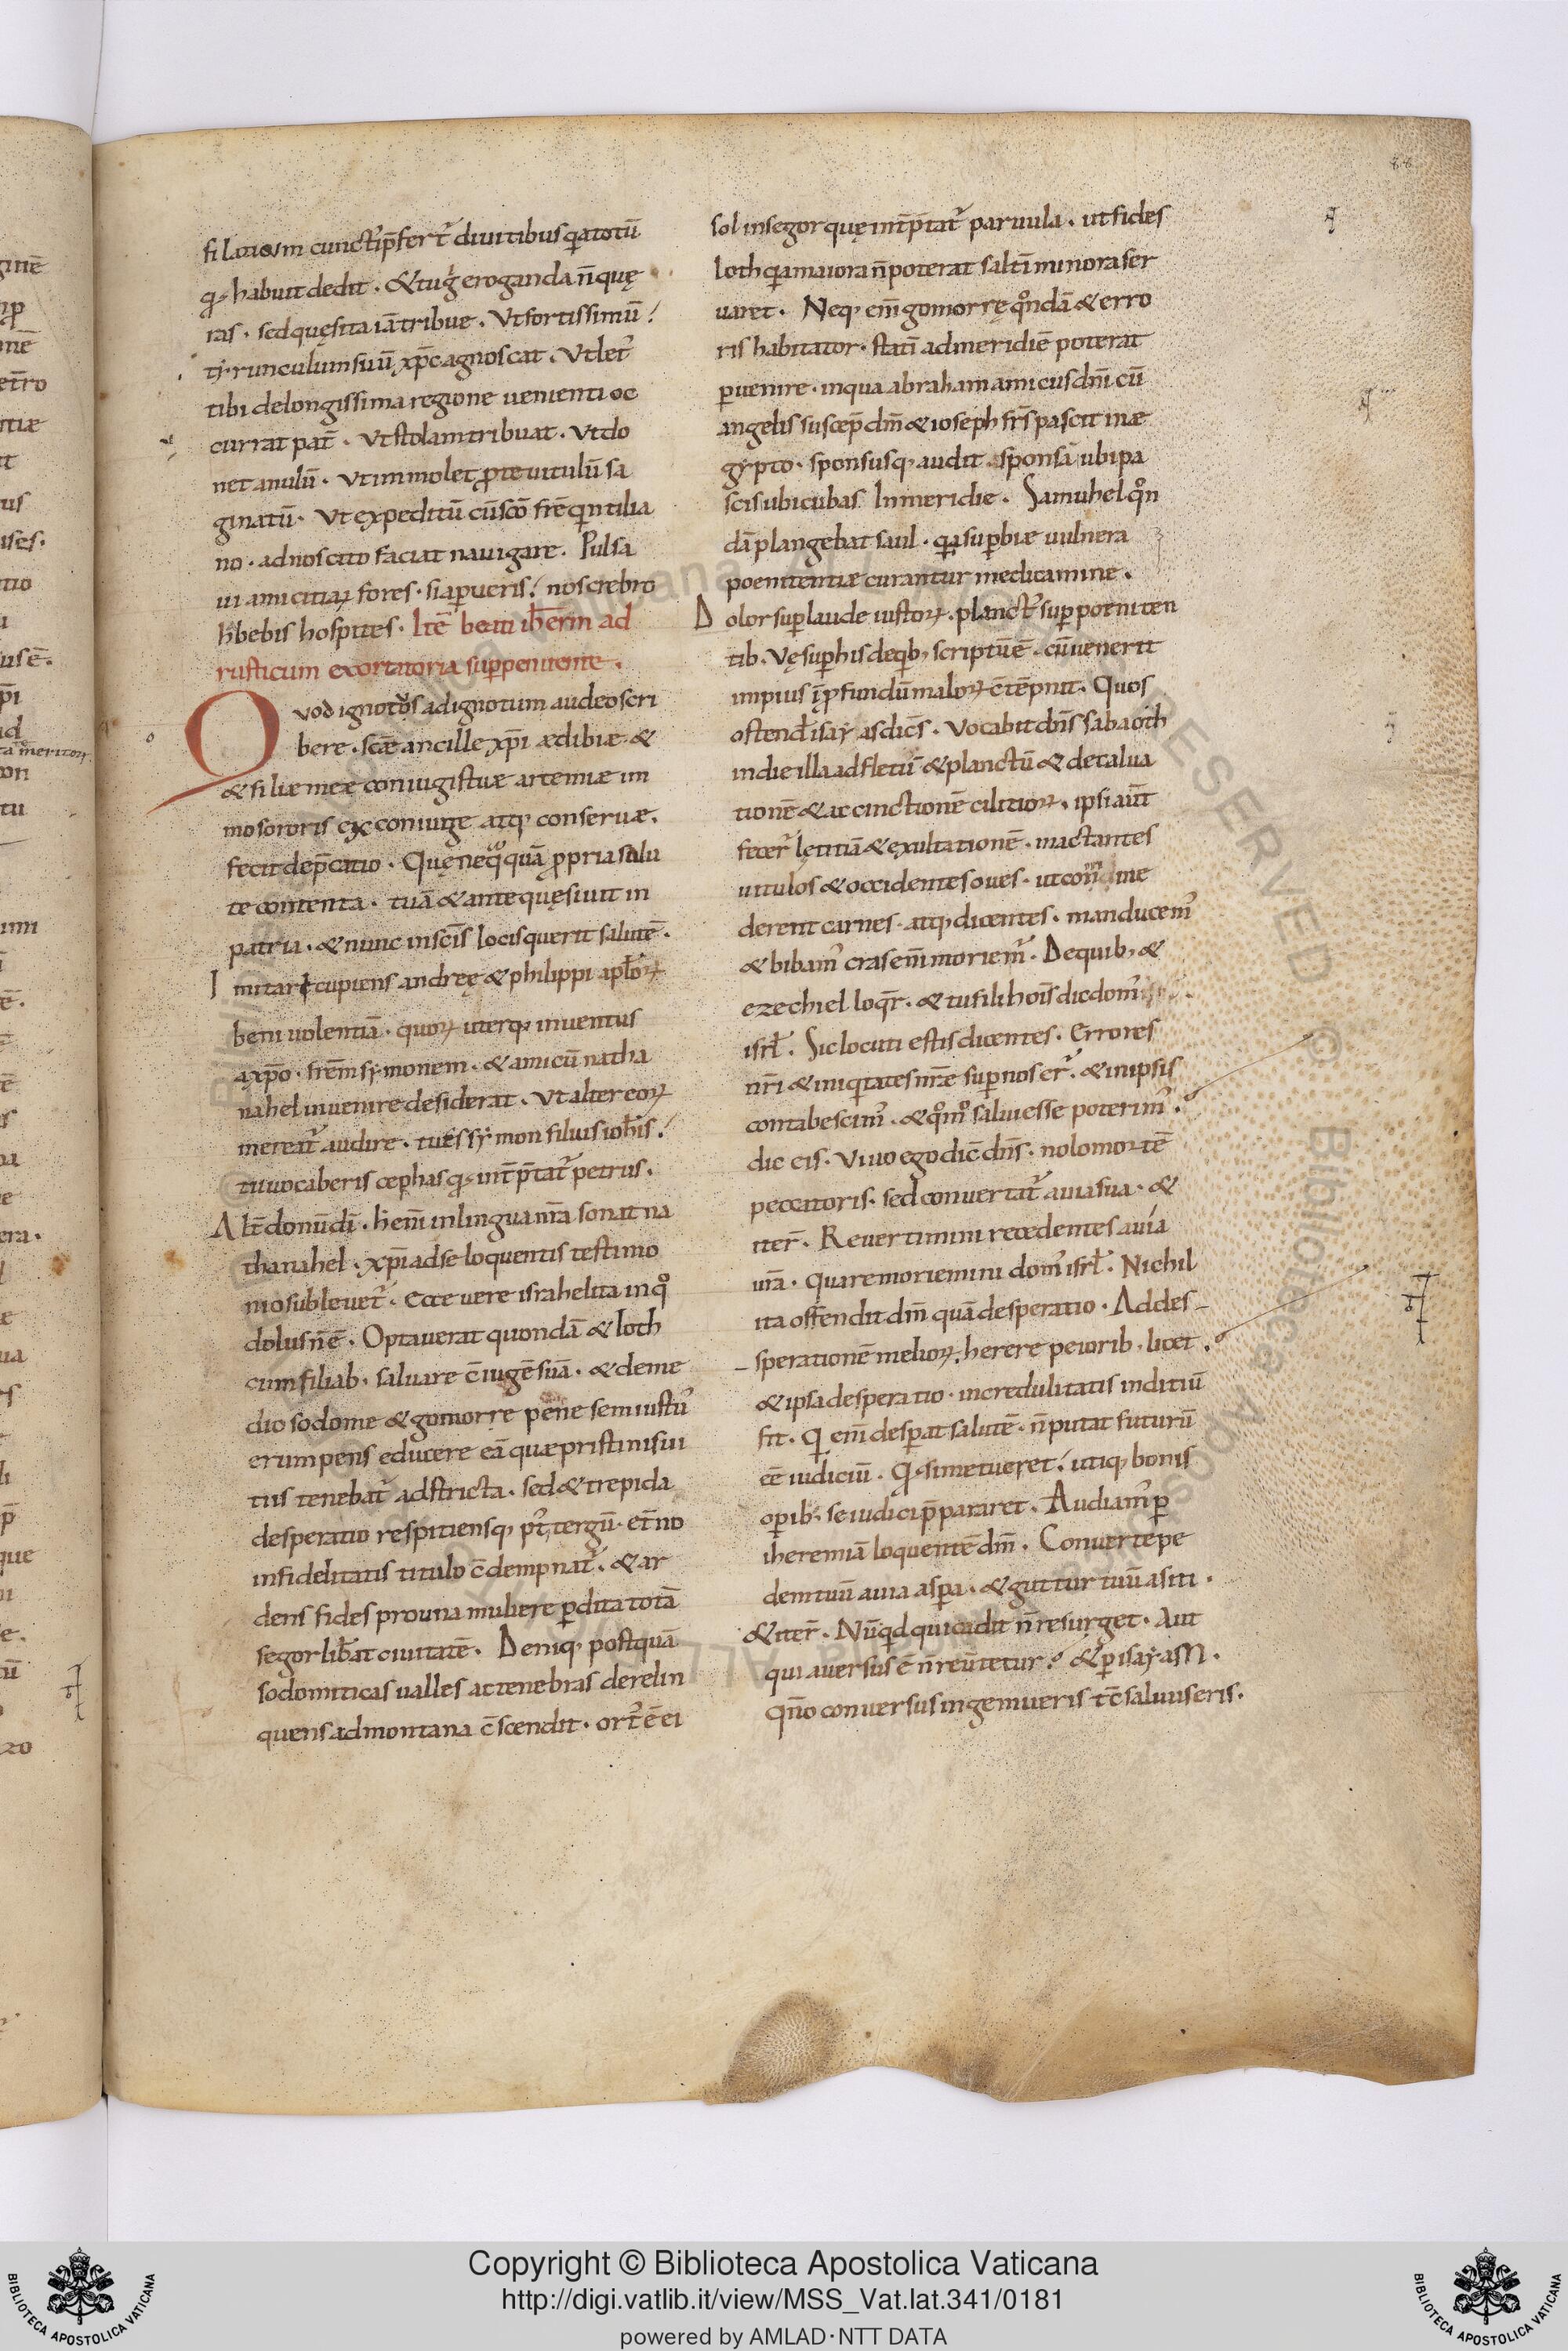 88
filarum cunctis p̄fert᷑ diuitibus q̄a totū
q̄ habuit dedit. & tu ḡ eroganda n̄ quę
ras. sed quęsita iā tribue. Vt fortissimū
tyrunculum suū xp̄c agnoscat. Vt let᷑
tibi de longissima regione uenienti oc
currat pat̄. Vt stolam tribuat. Vt do
net anulū. Vt immolet ꝓ te uitulū sa
ginatū. Vt expeditū cū sc̄o fr̄e quintilia
no. ad nos cito faciat nauigare. Pulsa
ui amicitiaꝝ fores. si aperueris. nos crebro
habebis hospites. Itē beati iherim ad
rusticum exortatoria sup penitente.
Quod ignotus ad ignotum audeo scri
bere. scæ ancille xp̄i ædibiæ. &
& filiæ meæ coniugis tuæ artemiæ im
mo sororis ex coniuge atq; conseruæ.
fecit dep̄catio. Quę neq̄quā ꝓpria salu
te contenta. tuā & ante quęsiuit in
patria. & nunc in sc̄is locis querit salutē.
Imitari cupiens andreę & philippi apl̄oꝝ
beniuolentiā. quoꝝ uterq; inuentus
a xp̄o. fr̄em symonem. & amicū natha
nahel inuenire desiderat. Vt alter eoꝝ
mereat᷑ audire. tu es symon filius ioh̄is.
tu uocaberis cephas q̄ int̄p̄tat᷑ petrus.
Alt̄ donū dī. h̄ enī in lingua nr̄a sonat na
thanahel. xp̄i ad se loquentis testimo
nio subleuet᷑. Ecce uere israhelita in qͦ
dolus n̄ ē. Optauerat quondā & loth
cum filiab; saluare c̄iugē suā. & de me
dio sodome & gomorrę pene semiustu᷑
erumpens educere eā quæ pristinis ui
tiis tenebat᷑ adstricta. sed & trepida
desperatio respitiensq; pt᷑ tergū. et̄no
infidelitatis titulo c̄dempnat᷑. & ar
dens fides pro una muliere ꝑdita totā
segor lib̄at ciuitatē. Deniq; postquā
sodomiticas ualles ac tenebras derelin
quens ad montana c̄scendit. ort᷑ ē ei
sol in segor quę int̄p̄tat᷑ paruula. ut fides
loth q̄a maiora n̄ poterat saltī minora ser
uaret. Neq; em̄ gomorrę qͦndā & erro
ris habitator. statī ad meridiē poterat
ꝑuenire. in qua abraham amicus dn̄i cū
angelis suscep̄ dm̄ & ioseph fr̄s pascit in æ
gypto. sponsusq; audit sponsā ubi pa
scis ubi cubas In meridie. Samuhel qͦn
dā plangebat saul. q̄a suꝑbiæ uulnera
poenitentiæ curantur medicamine.
Dolor suꝑ laude iustoꝝ. planct᷑ suꝑ poeniten
tib. Vę suꝑ his de qib; scriptū ē. cū uenerit
impius ī ꝓfundū maloꝝ c̄tēpnit. Quos
ostend̄ isayas dic̄s. Vocabit dn̄s sabaoth
in die illa ad fletū & planctū & decalua
tionē & accinctionē cilitioꝝ. ipsi aut̄
fecer᷑ lętitiā & exultationē. mactantes
uitulos & occidentes oues. ut comme
derent carnes. atq; dicentes. manducem᷑
& bibam᷑ cras em̄ moriem᷑. De quib; &
ezechiel loqr̄. & tu fili hoīs dic dom᷑
isrł. Sic locuti estis dicentes. Errores
nr̄i & iniqtates nr̄e suꝑ nos s̄r᷑. & in ipsis
contabescim᷑. & qͦmͦ salui esse poterim᷑.
dic eis. Viuo ego dic̄ dn̄s. nolo mortē
peccatoris. sed conuertat᷑ a uia sua. &
iter̄. Reuertimini recedentes a uia
ur̄a. Quare moriemini dom᷑ isrł. Nichil
ita offendit dm̄ quā desperatio. Ad des_
_sperationē melioꝝ. herere peiorib. licet.
& ipsa desperatio. incredulitatis inditiū
sit. Q em̄ desꝑat salutē. n̄ putat futurū
ee᷑ iudiciū. Q si metueret. utiq; bonis
oꝑib; se iudici p̄pararet. Audiam᷑ ꝑ
iheremiā loquentē dm̄. Conuerte pe
dem tuū a uia asꝑa. & guttur tuū a siti.
& iter̄. Nūqd qui cadit n̄ resurget. Aut
qui auersus ē n̄ reūtetur. & ꝑ isayam.
Qn̄o conuersus ingemueris tc̄ saluus eris.
Copyright © Biblioteca Apostolica Vaticana
http://digi.vatlib.it/view/MSS_Vat.lat.341/0181
powered by AMLAD·NTT DATA
BIBLIOTECA APOSTOLICA VATICANA
BIBLIOTECA APOSTOLICA VATICANA